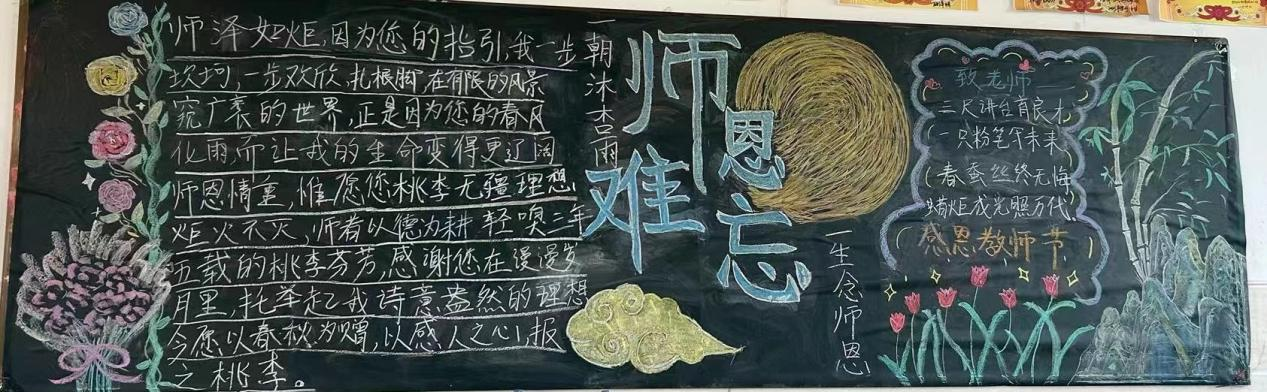 师泽如炬,因为您的指引,我一步
坎坷,一步欢欣,扎根脚,在有限的风景
窥广袤的世界,正是因为您的春风
化雨,而让我的生命变得更辽阔
师恩情重,惟愿您桃李无疆理想
炬火不灭,师者以德为耕轻嗅三年
五载的桃李芬芳,感谢您在漫漫岁
月里,托举起我诗意盎然的理想
今愿以春秋为赠,以感人之心,报
之桃李。
一朝沐杏雨
师恩
难忘
一生念师恩
致老师
三尺讲台育良木
一只粉笔写未来
春蚕丝终无悔
蜡炬成光照万代
感恩教师节